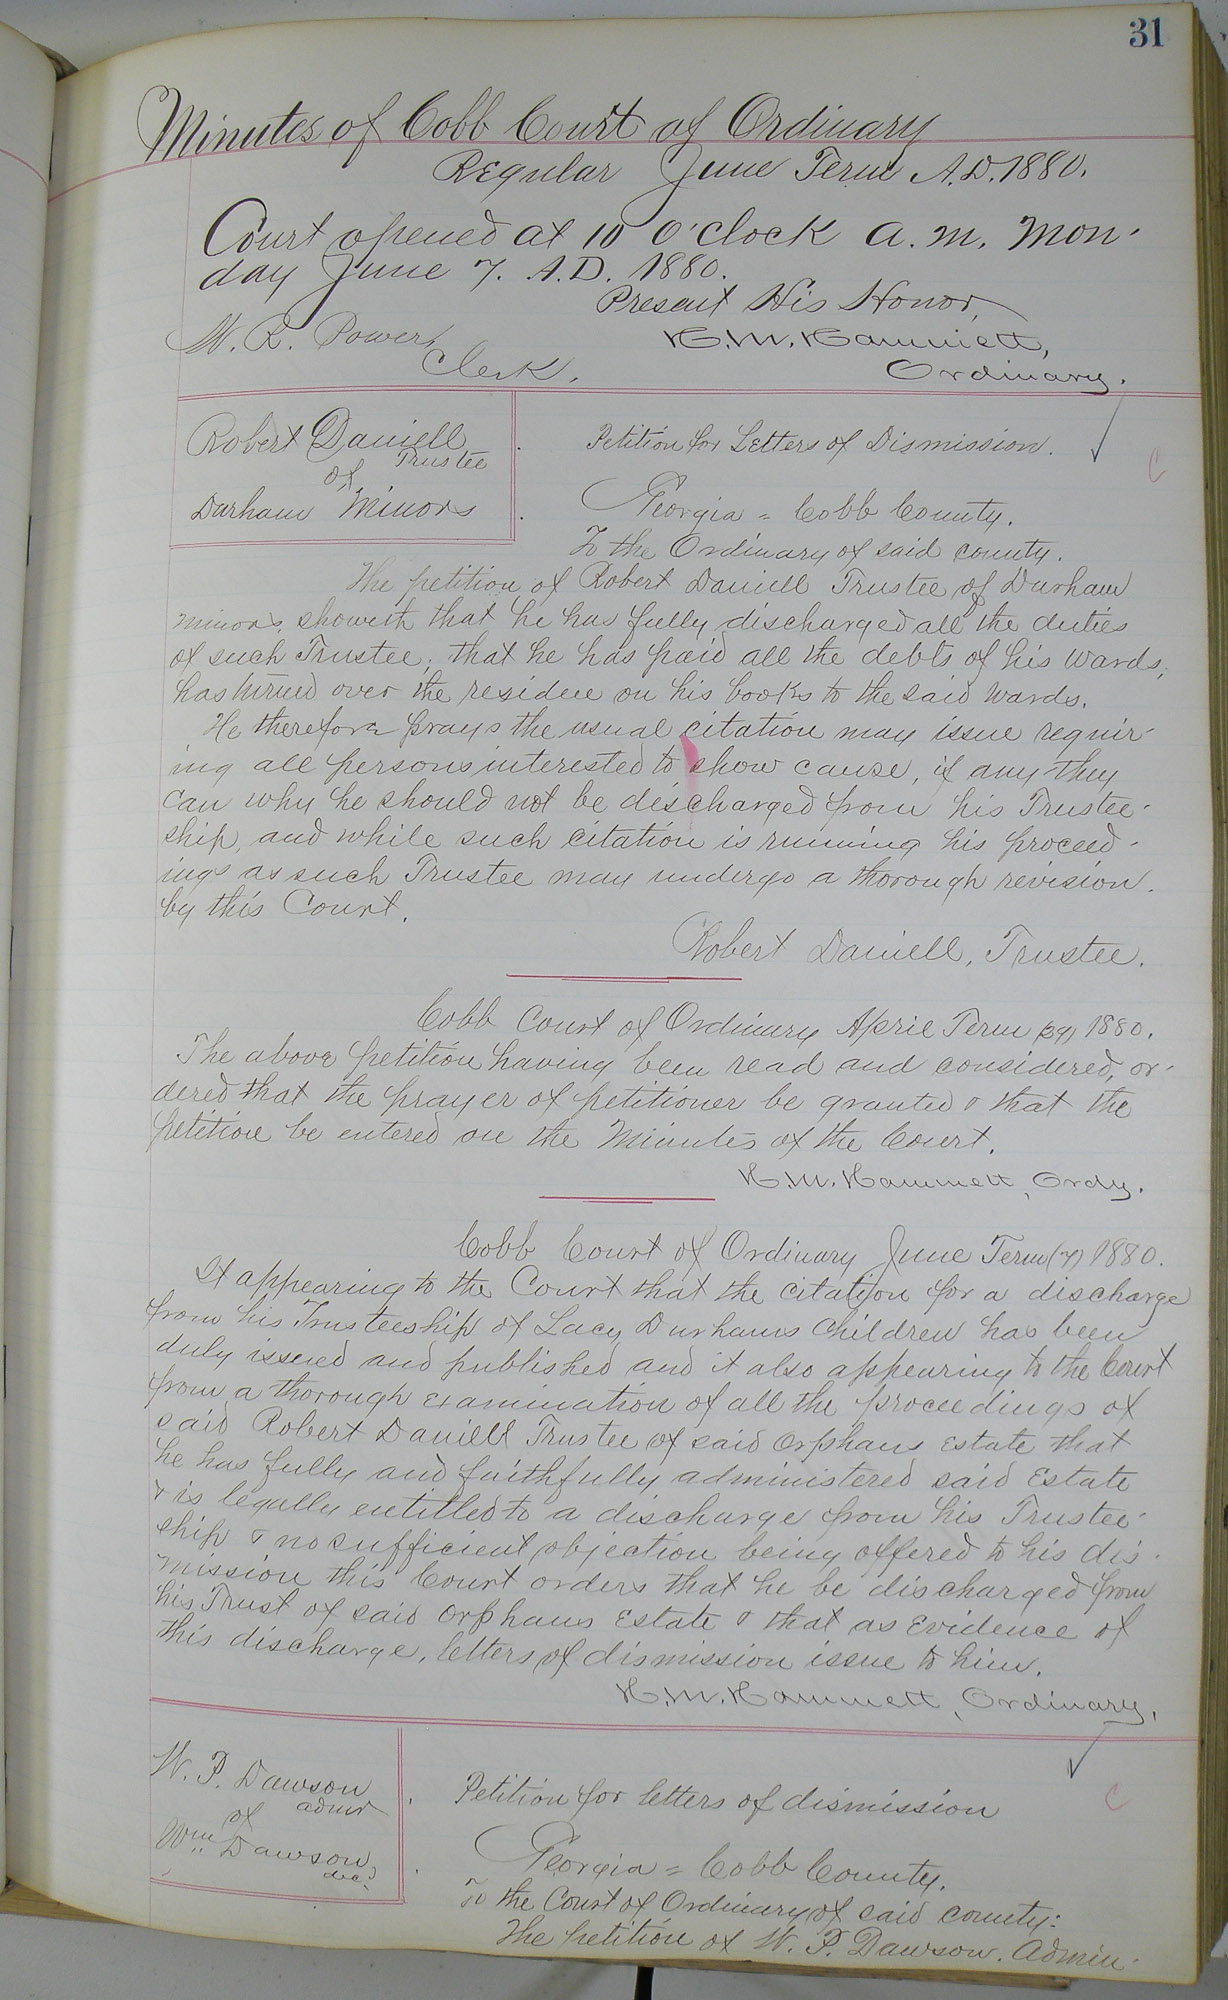 31
Minutes of Cobb Court of Ordinary
Regular June Term A.D. 1880.
Court opened at 10 O'clock a.m. Mon-
day June 7. A.D. 1880.
Present His Honor,
W. R. Power,
H. M. Hammett,
Clerk.
Ordinary.
Robert Daniell
Trustee
of
Durham Minors
Petition for Letters of Dismission.
C
Georgia = Cobb County.
To the Ordinary of said county.
The petition of Robert Daniell Trustee of Durham
minors, showeth that he has fully discharged all the duties
of such Trustee, that he has paid all the debts of his wards,
has turned over the residue on his books to the said wards.
He therefore prays the usual citation may issue requir-
ing all persons interested to show cause, if any they
can why he should not be discharged from his Trustee-
ship, and while such citation is running his proceed-
ings as such Trustee may undergo a thorough revision.
by this Court.
Robert Daniell, Trustee.
Cobb Court of Ordinary April Term 1880.
The above petition having been read and considered, or-
dered that the prayer of petitioner be granted & that the
petition be entered on the Minutes of the Court.
H. M. Hammett, Ordy.
Cobb Court of Ordinary June Term (7) 1880.
It appearing to the Court that the citation for a discharge
from his Trusteeship of Lacy Durhams Children has been
duly issued and published and it also appearing to the Court
from a thorough examination of all the proceedings of
said Robert Daniell Trustee of said orphans Estate that
he has fully and faithfully administered said Estate
& is legally entitled to a discharge from his Trustee-
ship & no sufficient objection being offered to his dis-
mission this Court orders that he be discharged from
his Trust of said orphans Estate & that as Evidence of
this discharge, letters of dismission issue to him.
H. M. Hammett, Ordinary.
W. P. Dawson
admr
of
Wm Dawson,
decd
Petition for letters of dismission
C
Georgia = Cobb County.
To the Court of Ordinary of said county:
The petition of W. P. Dawson. Admin-